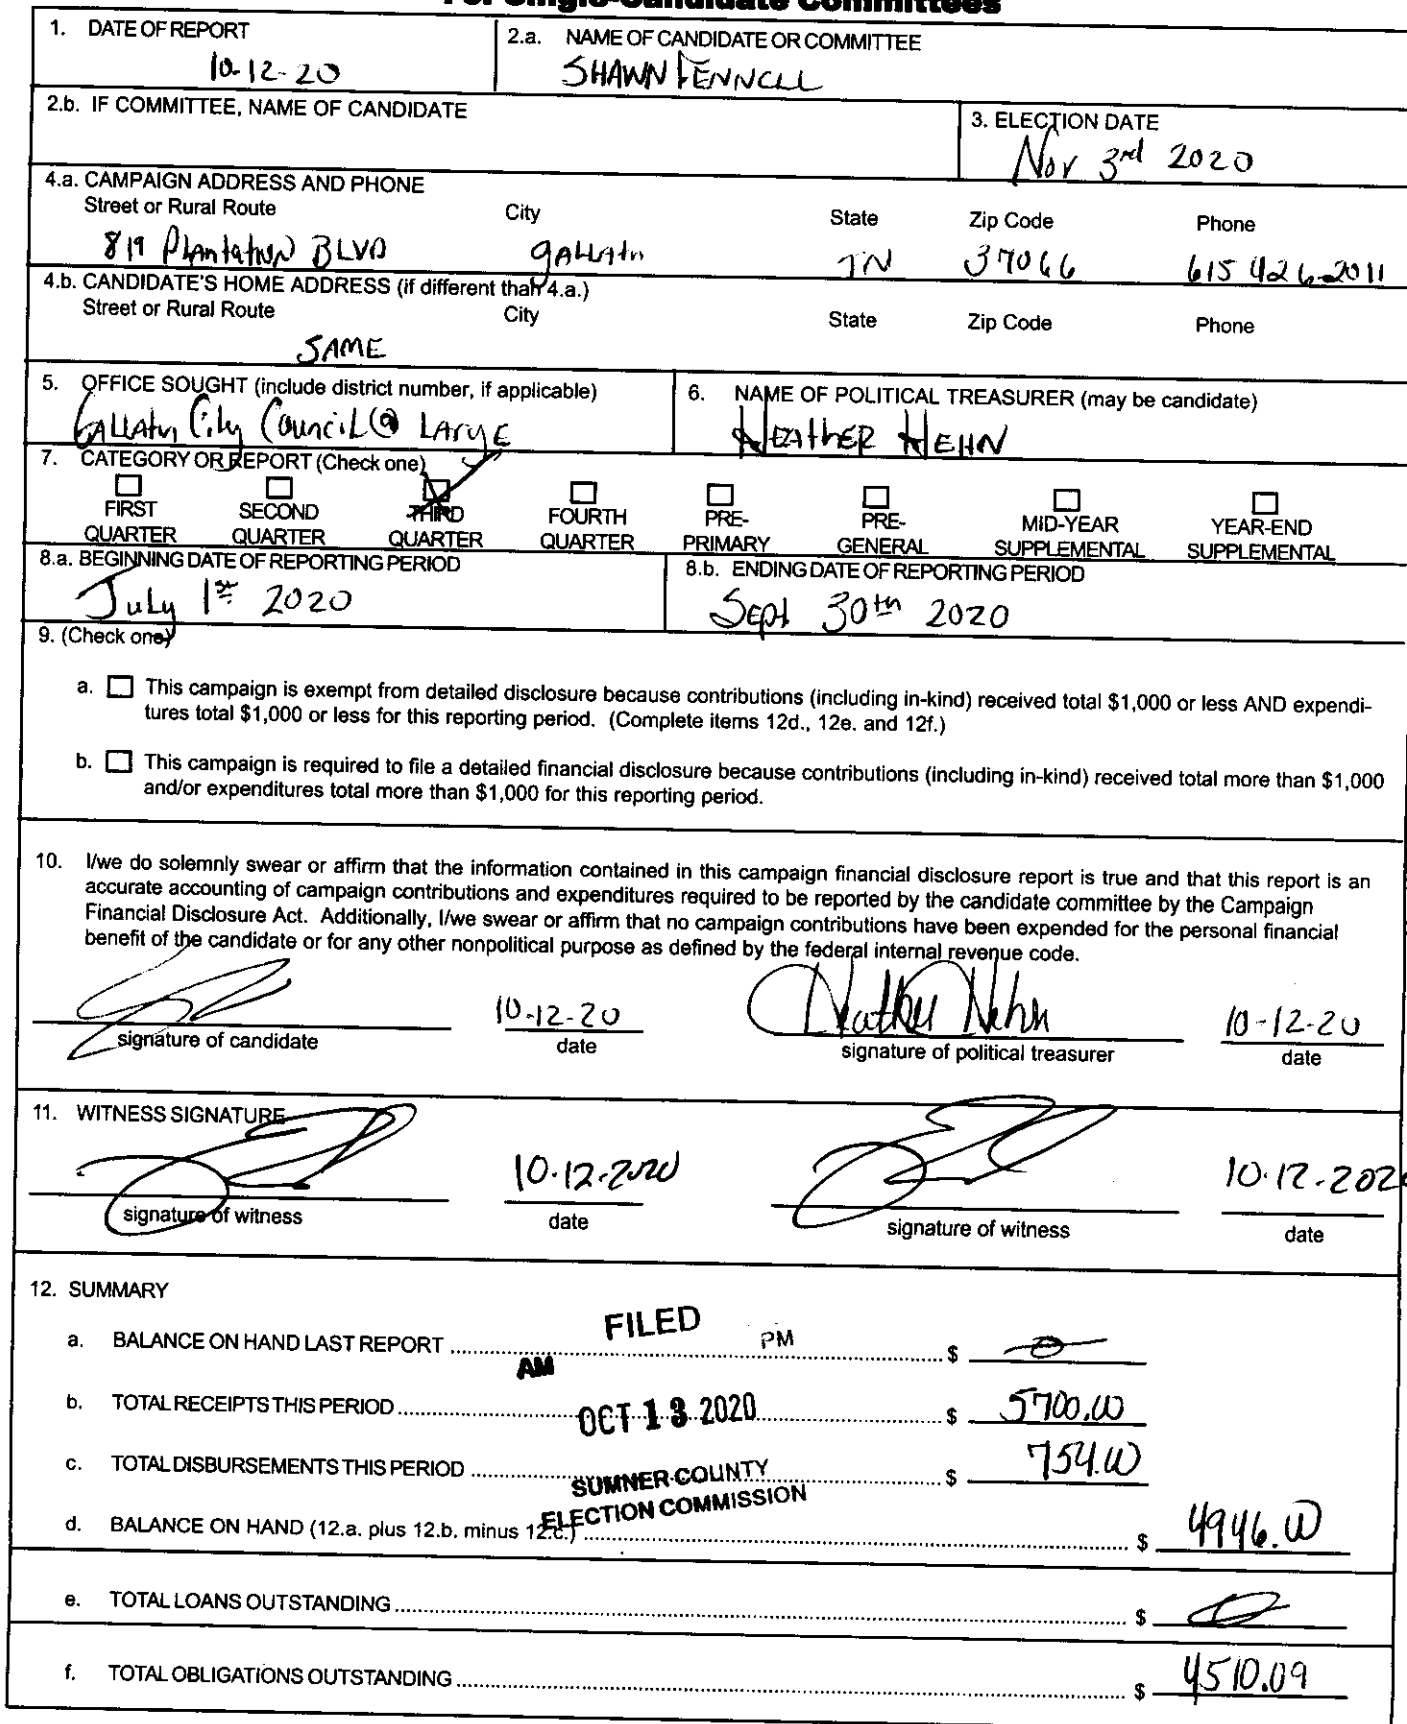 For Single-Candidate Committees
1. DATE OF REPORT
10-12-20
2.a. NAME OF CANDIDATE OR COMMITTEE
SHAWN FENNELL
2.b. IF COMMITTEE, NAME OF CANDIDATE
3. ELECTION DATE
Nov 3rd 2020
4.a. CAMPAIGN ADDRESS AND PHONE
Street or Rural Route City State Zip Code Phone
819 Plantation BLVD gALLAtin TN 37066 615 426-2011
4.b. CANDIDATE'S HOME ADDRESS (if different than 4.a.)
Street or Rural Route City State Zip Code Phone
SAME
5. OFFICE SOUGHT (include district number, if applicable)
GALLAtin City Council @ LArgE
6. NAME OF POLITICAL TREASURER (may be candidate)
HEAthER HEHN
7. CATEGORY OR REPORT (Check one)
FIRST QUARTER
SECOND QUARTER
THIRD QUARTER
FOURTH QUARTER
PRE-PRIMARY
PRE-GENERAL
MID-YEAR SUPPLEMENTAL
YEAR-END SUPPLEMENTAL
8.a. BEGINNING DATE OF REPORTING PERIOD
July 1st 2020
8.b. ENDING DATE OF REPORTING PERIOD
Sept 30th 2020
9. (Check one)
a. This campaign is exempt from detailed disclosure because contributions (including in-kind) received total $1,000 or less AND expendi-
tures total $1,000 or less for this reporting period. (Complete items 12d., 12e. and 12f.)
b. This campaign is required to file a detailed financial disclosure because contributions (including in-kind) received total more than $1,000
and/or expenditures total more than $1,000 for this reporting period.
10. I/we do solemnly swear or affirm that the information contained in this campaign financial disclosure report is true and that this report is an
accurate accounting of campaign contributions and expenditures required to be reported by the candidate committee by the Campaign
Financial Disclosure Act. Additionally, I/we swear or affirm that no campaign contributions have been expended for the personal financial
benefit of the candidate or for any other nonpolitical purpose as defined by the federal internal revenue code.
10-12-20 Heather Hehn 10-12-20
signature of candidate date signature of political treasurer date
11. WITNESS SIGNATURE
10.12.2020 10.12.2020
signature of witness date signature of witness date
12. SUMMARY
FILED
AM PM
OCT 13 2020
SUMNER COUNTY
ELECTION COMMISSION
a. BALANCE ON HAND LAST REPORT $ 0
b. TOTAL RECEIPTS THIS PERIOD $ 5700.00
c. TOTAL DISBURSEMENTS THIS PERIOD $ 754.00
d. BALANCE ON HAND (12.a. plus 12.b. minus 12.c.) $ 4946.00
e. TOTAL LOANS OUTSTANDING $ 0
f. TOTAL OBLIGATIONS OUTSTANDING $ 4510.09